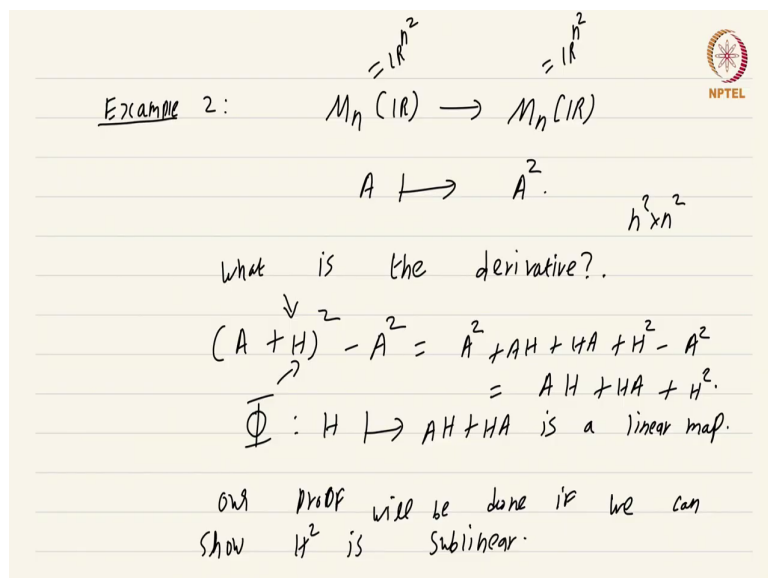 = IRⁿ² = IRⁿ²
Example 2: Mₙ (IR) ⟶ Mₙ (IR)
NPTEL
A ⟼ A².
n² x n²
What is the derivative?.
(A + H)² - A² = A² + AH + HA + H² - A²
= AH + HA + H².
Φ : H ⟼ AH + HA is a linear map.
our proof will be done if we can
show H² is sublinear.